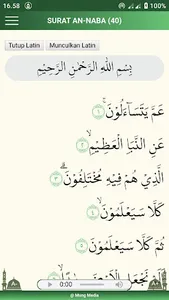 16.58
SURAT AN-NABA (40)
Tutup Latin Munculkan Latin
بِسْمِ اللّٰهِ الرَّحْمٰنِ الرَّحِيْمِ
عَمَّ يَتَسَاۤءَلُوْنَۚ ١
عَنِ النَّبَاِ الْعَظِيْمِۙ ٢
الَّذِيْ هُمْ فِيْهِ مُخْتَلِفُوْنَۗ ٣
كَلَّا سَيَعْلَمُوْنَۙ ٤
ثُمَّ كَلَّا سَيَعْلَمُوْنَ ٥
0:00
@ Mong Media